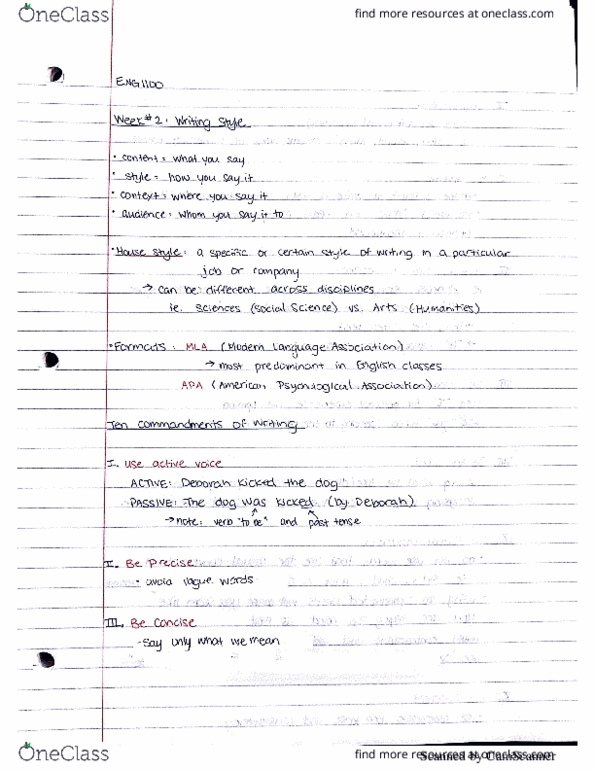 OneClass
find more resources at oneclass.com
ENG1100
Week #2: Writing Style
• content = what you say
• style = how you say it
• context = where you say it
• audience = whom you say it to
• House style: a specific or certain style of writing in a particular
job or company
→ can be different across disciplines
ie. sciences (social science) vs. Arts (Humanities)
• Formats: MLA (Modern Language Association)
→ most predominant in English classes
APA (American Psychological Association)
Ten commandments of writing
I. use active voice
ACTIVE: Deborah kicked the dog
PASSIVE: The dog was kicked (by Deborah)
→ note: verb "to be" and past tense
II. Be Precise
• avoid vague words
III. Be Concise
- Say only what we mean
OneClass
find more resources at oneclass.com
Scanned by CamScanner